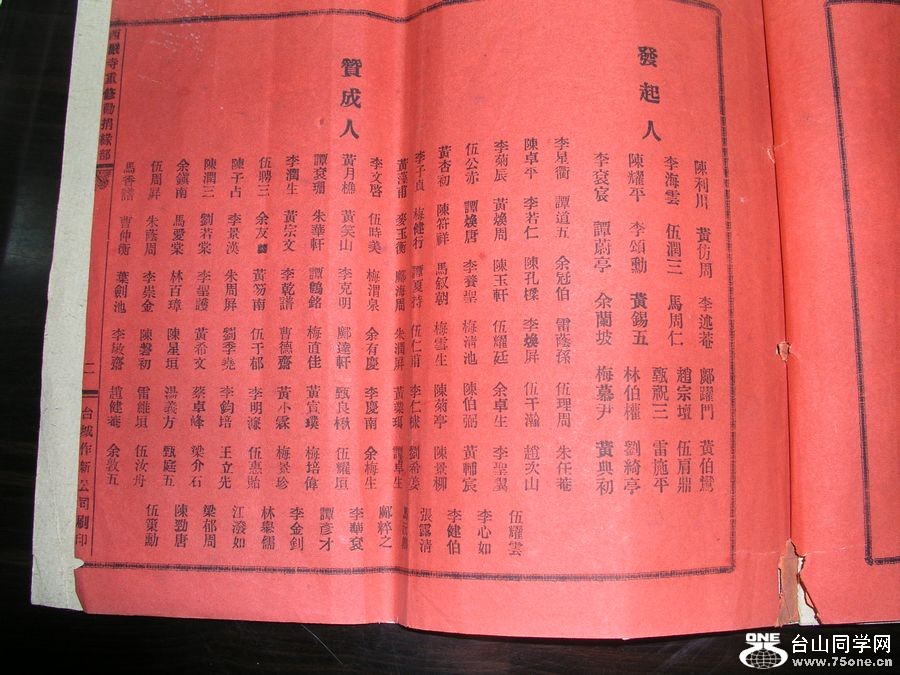 發起人
陳利川 黃仿周 李述菴 鄺躍門 黃伯鸞
李海雲 伍潤三 馬周仁 趙宗壇 伍肩鼎
陳耀平 李頌勳 黃錫五 甄祝三 雷施平
李袞宸 譚蔚亭 余蘭坡 林伯權 劉綺亭
梅慕尹 黃典初
贊成人
李星衢 譚道五 余冠伯 雷蔭孫 伍理周 朱任菴
陳卓平 李若仁 陳孔樑 李煥屏 伍于瀚 趙次山
李菊辰 黃煥周 陳玉軒 伍耀廷 余卓生 李聖翼 伍耀雲
伍公赤 譚煥唐 李養聖 梅清池 陳伯弼 黃輔宸 李心如
黃杏初 陳符祥 馬叙朝 梅雲生 陳菊亭 陳景柳 李健伯
李子貞 梅健行 譚夏持 伍仁甫 李仁棣 劉希姜 張露清
麥玉衡 鄺海周 朱潤屏 黃璞珥 譚卓生
李文啓 伍時美 梅渭泉 余有慶 李慶南 余梅生 鄺粹之
黃月樵 黃笑山 李克明 鄺達軒 甄良楸 伍耀垣 李華袞
譚袞珊 朱華軒 譚鶴銘 梅直佳 黃寅璞 梅培偉 譚彥才
李潤生 黃宗文 李乾譜 曹德齋 黃小霖 梅景珍 李金釗
伍聘三 余友 黃笏南 伍于郁 李明濂 伍惠貽 林舉儒
陳子占 李景漢 朱周屏 劉季堯 李鈞培 王立先 江潑如
陳潤三 劉若棠 李聖護 黃希文 蔡卓峰 梁介石 梁郁周
余鎮南 馬愛棠 林百璋 陳星垣 湯義方 甄庭五 陳勁唐
伍周昇 朱蔭周 李崇金 陳磬初 雷維垣 伍汝舟 伍策勳
馬香譜 曹仲衡 葉劍池 李敏齋 趙健菴 余敦五
西巖寺重修勸捐緣部
二
台城作新公司刷印
ONE
台山同学网
www.75one.cn